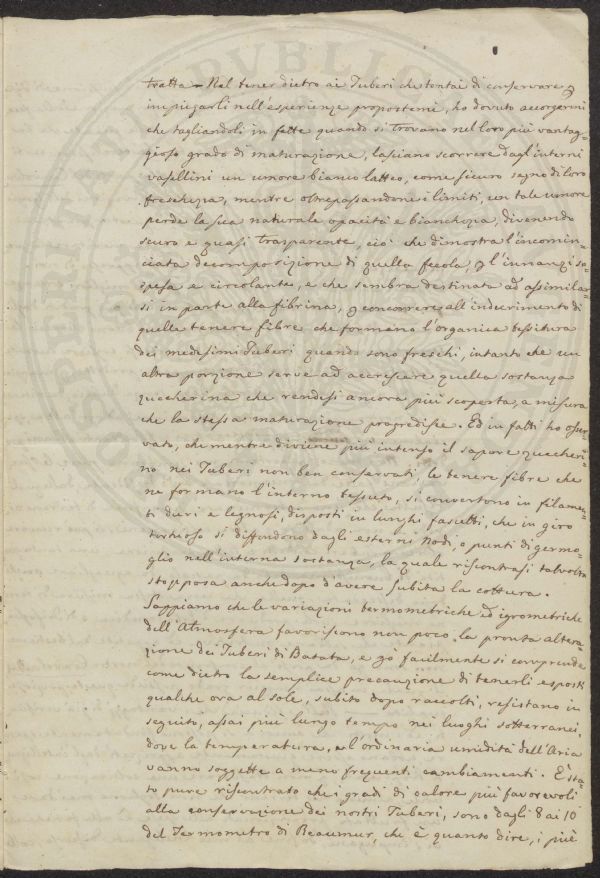 tratta. Nel tener dietro ai Tuberi che tentai di conservare, ed
impiegarli nell'esperienze propostemi, ho dovuto accorgermi
che tagliandoli in fette quando si trovano nel loro più vantag-
gioso grado di maturazione, lasciano scorrere dagl'interni
vasellini un umore bianco latteo, come sicuro segno di loro
freschezza, mentre oltrepassandone i limiti, un tale umore
perde la sua naturale opacità e bianchezza, divenendo
scuro e quasi trasparente, ciò che dimostra l'incomin-
ciata decomposizione di quella fecola, l'innanzi so-
spesa e circolante, e che sembra destinata ad assimilar-
si in parte alla fibrina, e concorrere all'indurimento di
quelle tenere fibre che formano l'organica tessitura
dei medesimi Tuberi quando sono freschi, intanto che un
altra porzione serve ad accrescere quella sostanza
zuccherina che rendesi ancora più scoperta, a misura
che la stessa maturazione progredisce. Ed in fatti ho osser-
vato, che mentre diviene più intenso il sapore zuccheri-
no nei Tuberi non ben conservati, le tenere fibre che
ne formano l'interno tessuto, si convertono in filamen-
ti duri e legnosi, disposti in lunghi fascetti, che in giro
tortuoso si diffondono dagli esterni nodi, o punti di germo-
glio nell'interna sostanza, la quale riscontrasi talvolta
stopposa anche dopo d'avere subita la cottura.
Sappiamo che le variazioni termometriche ed igrometriche
dell'Atmosfera favoriscono non poco la pronta altera-
zione dei Tuberi di Batata, e ciò facilmente si comprende
come dietro la semplice precauzione di tenerli esposti
qualche ora al sole, subito dopo raccolti, resistano in
seguito, assai più lungo tempo nei luoghi sotterranei,
dove la temperatura, e l'ordinaria umidità dell'Aria
vanno soggette a meno frequenti cambiamenti. È sta-
to pure riscontrato che i gradi di calore più favorevoli
alla conservazione dei nostri Tuberi, sono dagli 8 ai 10
del Termometro di Reaumur, che è quanto dire, i più